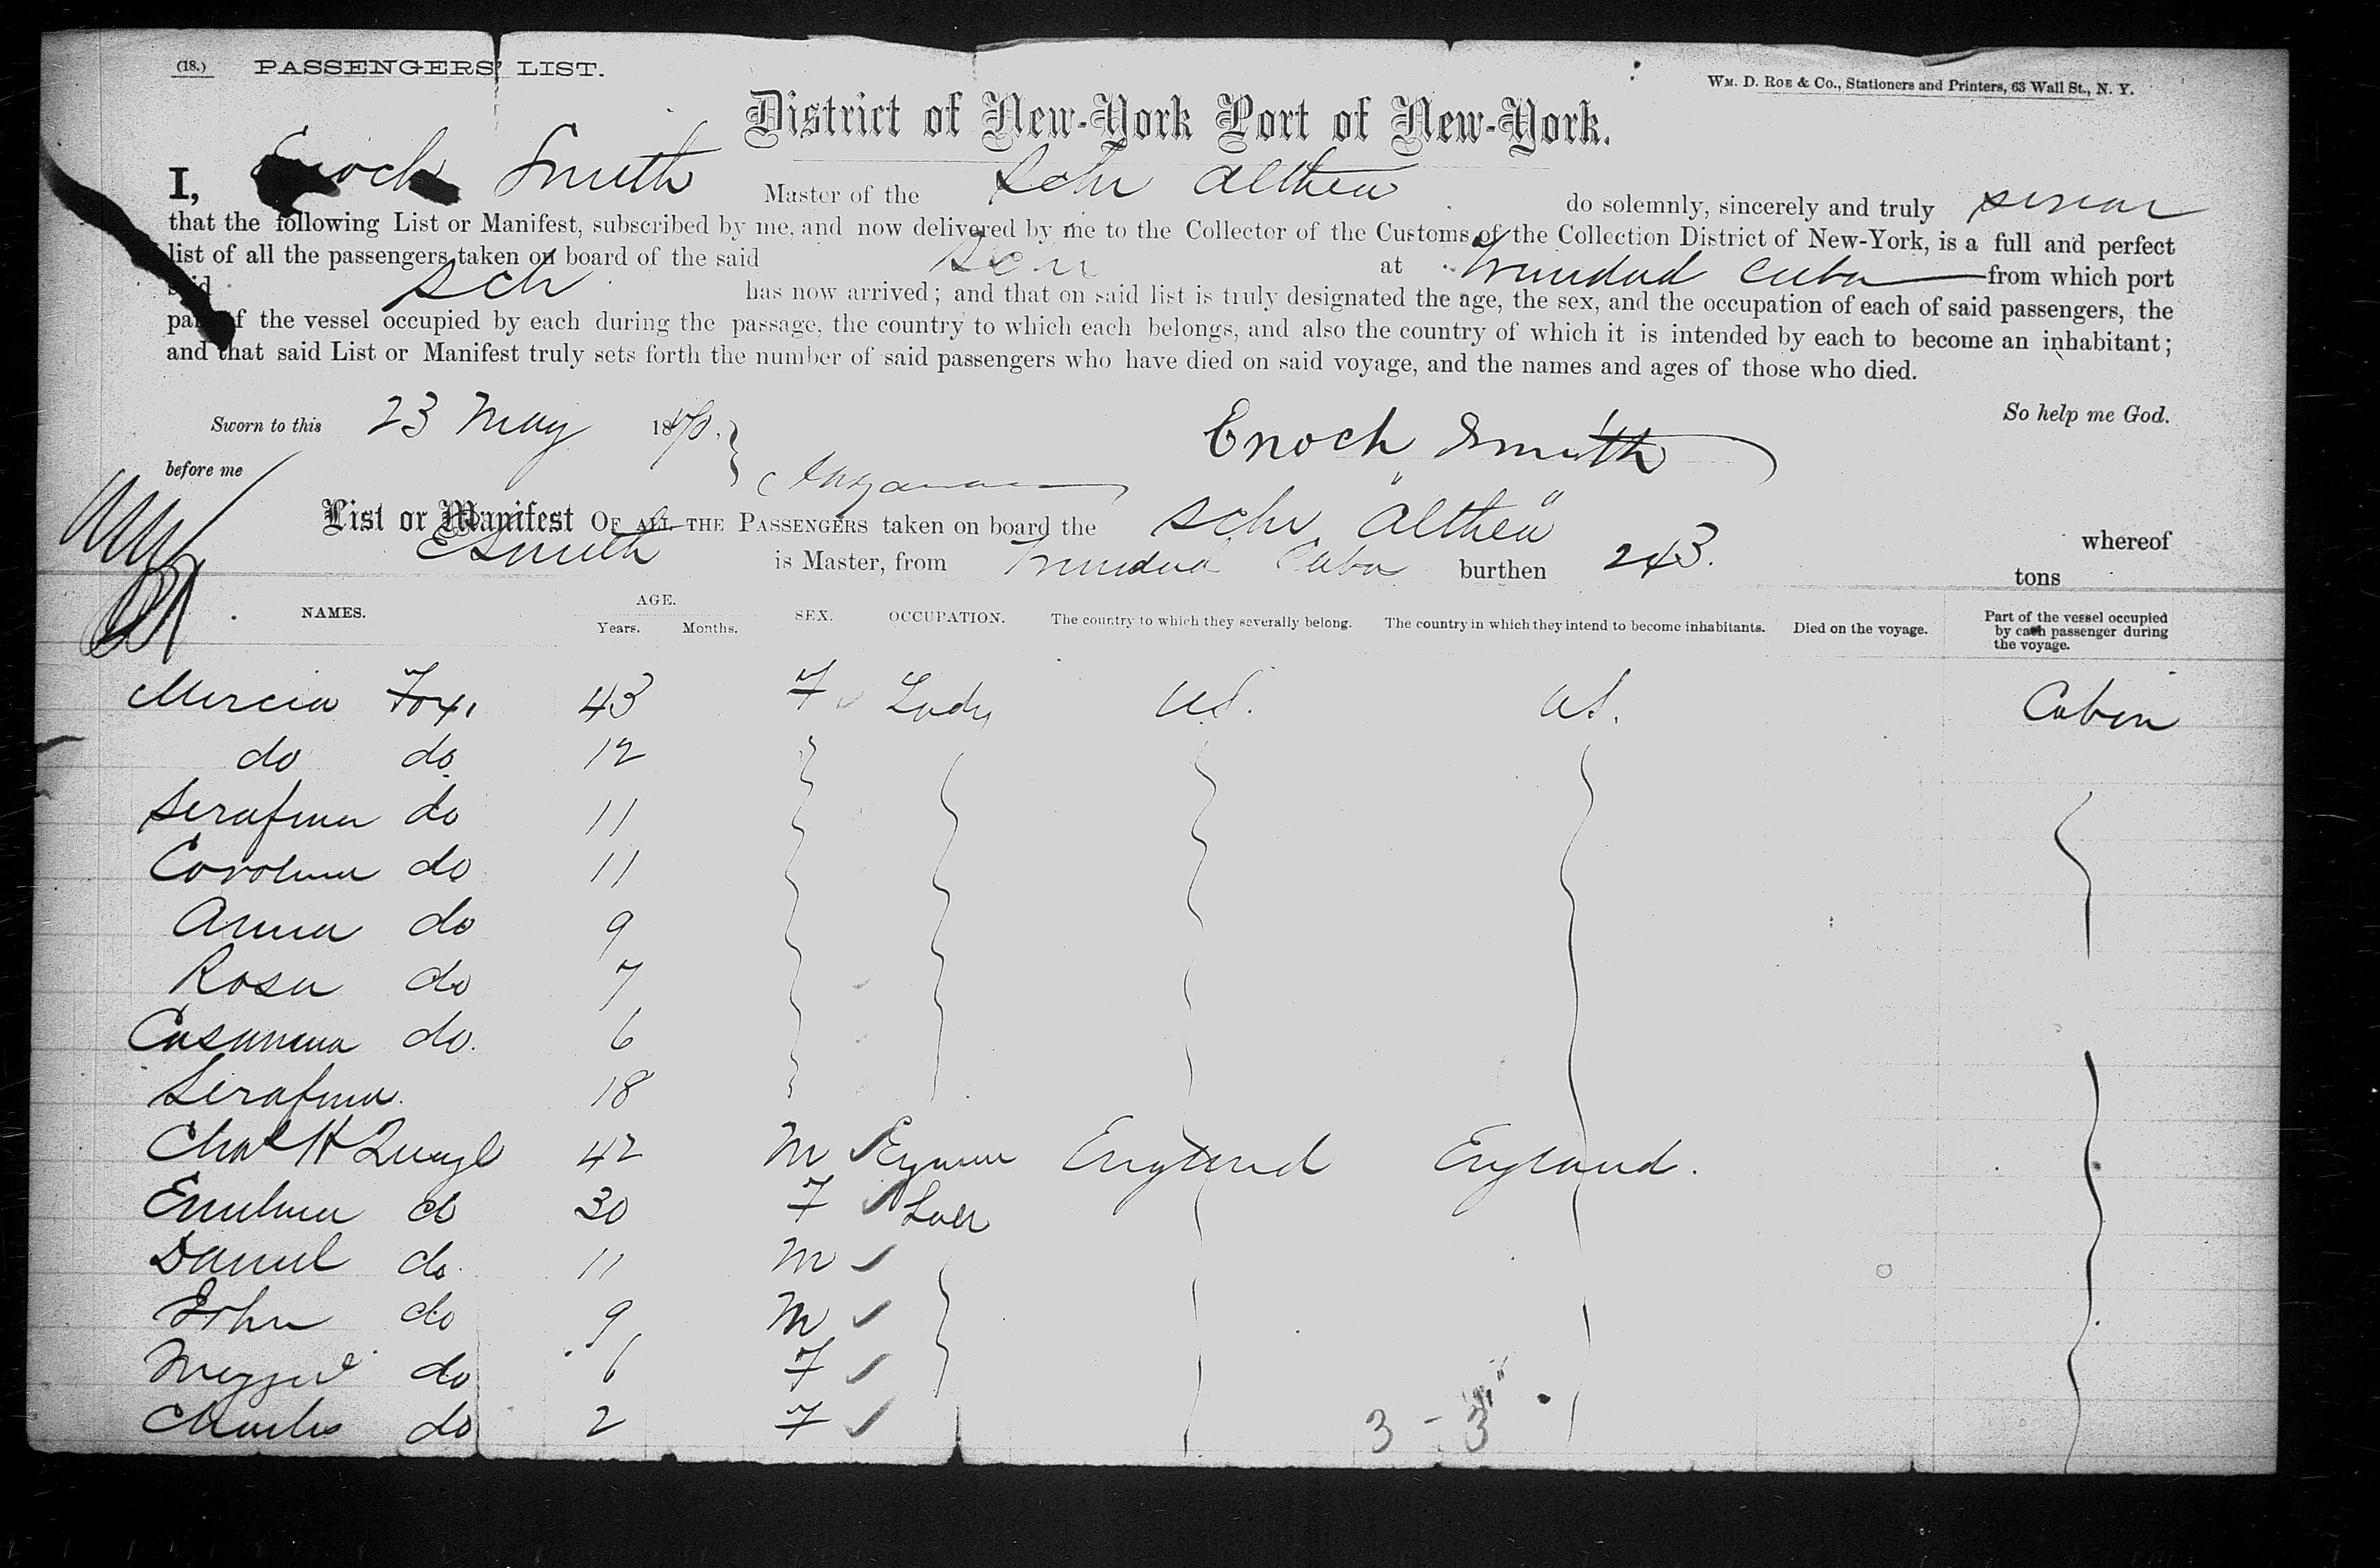 (18.) PASSENGERS' LIST.
WM. D. ROE & CO., Stationers and Printers, 63 Wall St., N. Y.
District of New-York Port of New-York.
I, Enoch Smith Master of the Schr Althea do solemnly, sincerely and truly swear
that the following List or Manifest, subscribed by me, and now delivered by me to the Collector of the Customs of the Collection District of New-York, is a full and perfect
list of all the passengers taken on board of the said Schr at Trinidad Cuba from which port
said Sch has now arrived; and that on said list is truly designated the age, the sex, and the occupation of each of said passengers, the
part of the vessel occupied by each during the passage, the country to which each belongs, and also the country of which it is intended by each to become an inhabitant;
and that said List or Manifest truly sets forth the number of said passengers who have died on said voyage, and the names and ages of those who died.
So help me God.
Sworn to this 23 May 1870. Enoch Smith
before me
List or Manifest OF ALL THE PASSENGERS taken on board the Schr "Althea" whereof
E Smith is Master, from Trinidad Cuba burthen 243. tons
NAMES. AGE. Years. Months. SEX. OCCUPATION. The country to which they severally belong. The country in which they intend to become inhabitants. Died on the voyage. Part of the vessel occupied by each passenger during the voyage.
Mercia Fox 43 F Lady US. US. Cabin
do do 12
Serafina do 11
Carolina do 11
Anna do 9
Rosa do 7
do. 6
Serafina. 18
Chas H 42 M England England.
Emelina do 30 F
Daniel do 11 M
John do 9 M
do 6 F
Charles do 2 F
3 - 3